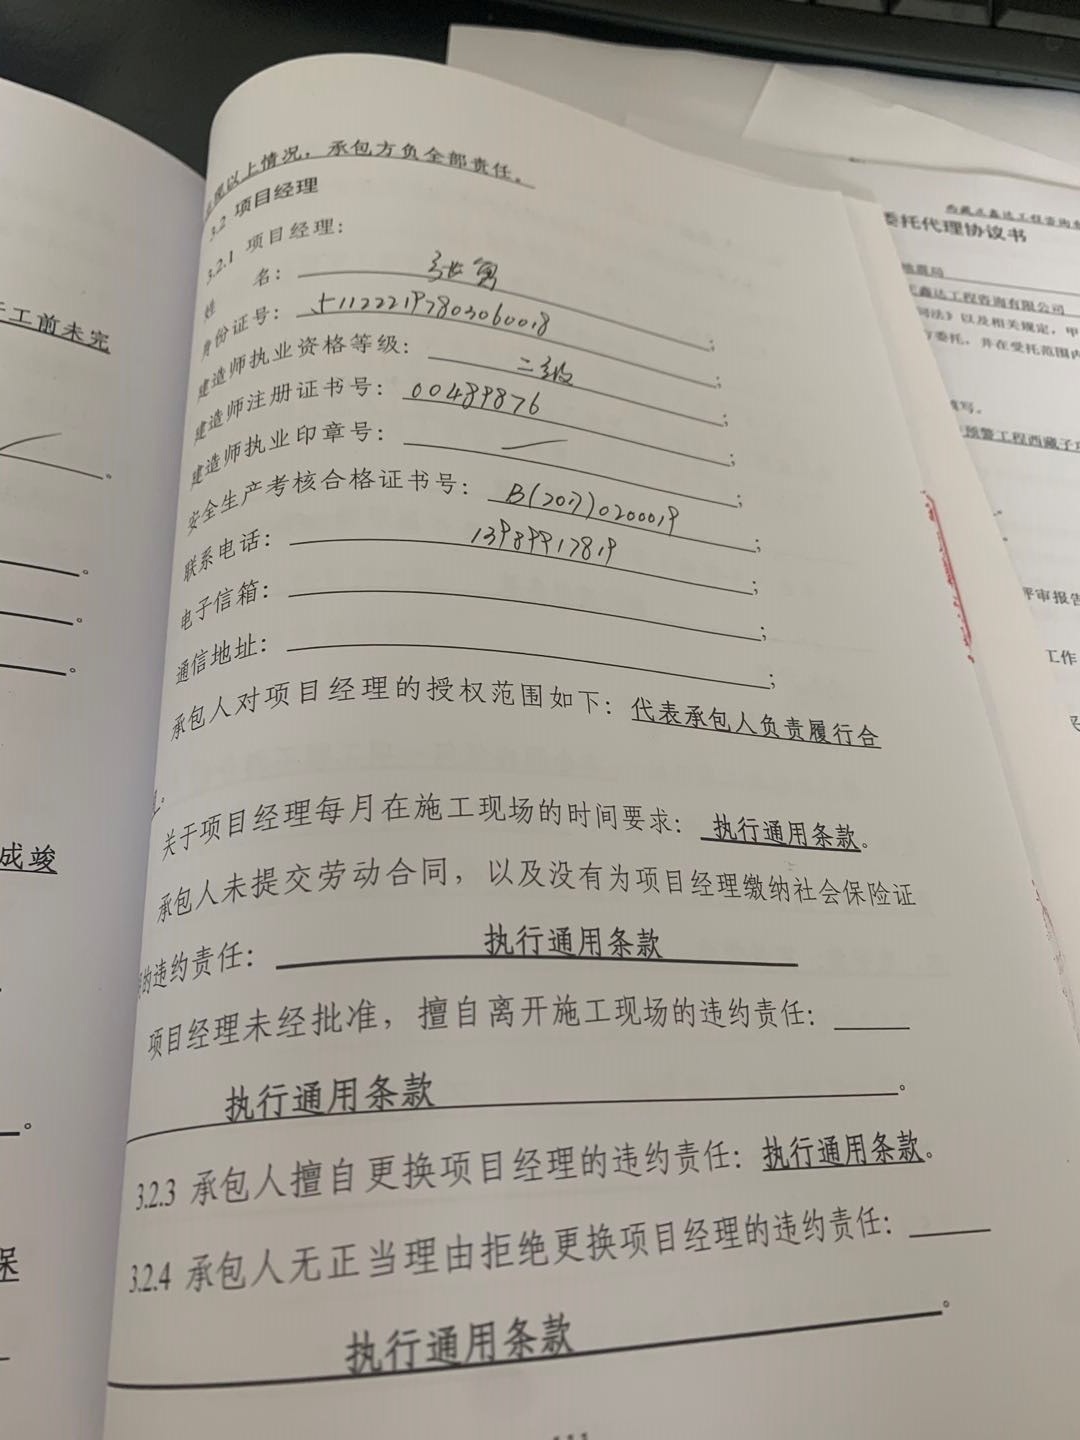 现以上情况，承包方负全部责任。
3.2 项目经理
3.2.1 项目经理：
姓 名：
身份证号：511222197803060018；
建造师执业资格等级：二级；
建造师注册证书号：00489876；
建造师执业印章号：—；
安全生产考核合格证书号：B(207)0200019；
联系电话：13989917819；
电子信箱： ；
通信地址： ；
承包人对项目经理的授权范围如下：代表承包人负责履行合
关于项目经理每月在施工现场的时间要求：执行通用条款。
承包人未提交劳动合同，以及没有为项目经理缴纳社会保险证
的违约责任：执行通用条款
项目经理未经批准，擅自离开施工现场的违约责任：
执行通用条款。
3.2.3 承包人擅自更换项目经理的违约责任：执行通用条款。
3.2.4 承包人无正当理由拒绝更换项目经理的违约责任：
执行通用条款。
工前未完
成竣
保
委托代理协议书
地震局
鑫达工程咨询有限公司
同法》以及相关规定，甲
方委托，并在受托范围内
填写。
预警工程西藏子项
评审报告
工作